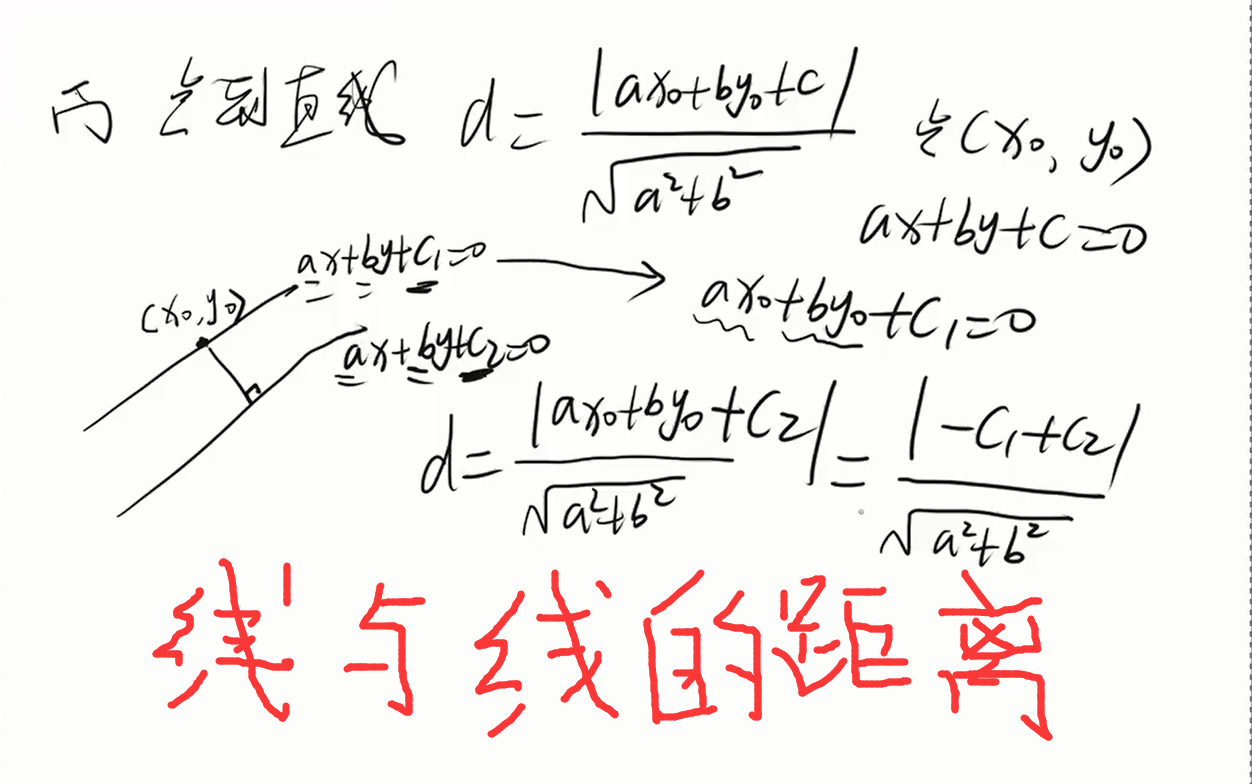 丙 点到直线 d=|ax₀+by₀+c|/√(a²+b²) 点(x₀, y₀)
ax+by+c=0
ax+by+C₁=0
(x₀,y₀)
ax₀+by₀+C₁=0
ax+by+C₂=0
d=|ax₀+by₀+C₂|/√(a²+b²)=|-C₁+C₂|/√(a²+b²)
线与线的距离